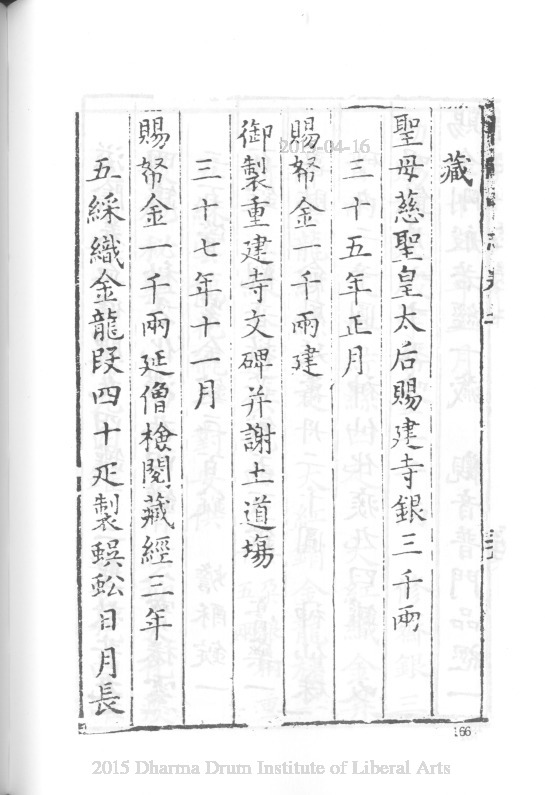 藏
聖母慈聖皇太后賜建寺銀三千兩
三十五年正月
賜帑金一千兩建
御製重建寺文碑并謝土道塲
三十七年十一月
賜帑金一千兩延僧檢閱藏經三年
五綵織金龍段四十疋製蜈蚣日月長
166
2015-04-16
2015 Dharma Drum Institute of Liberal Arts